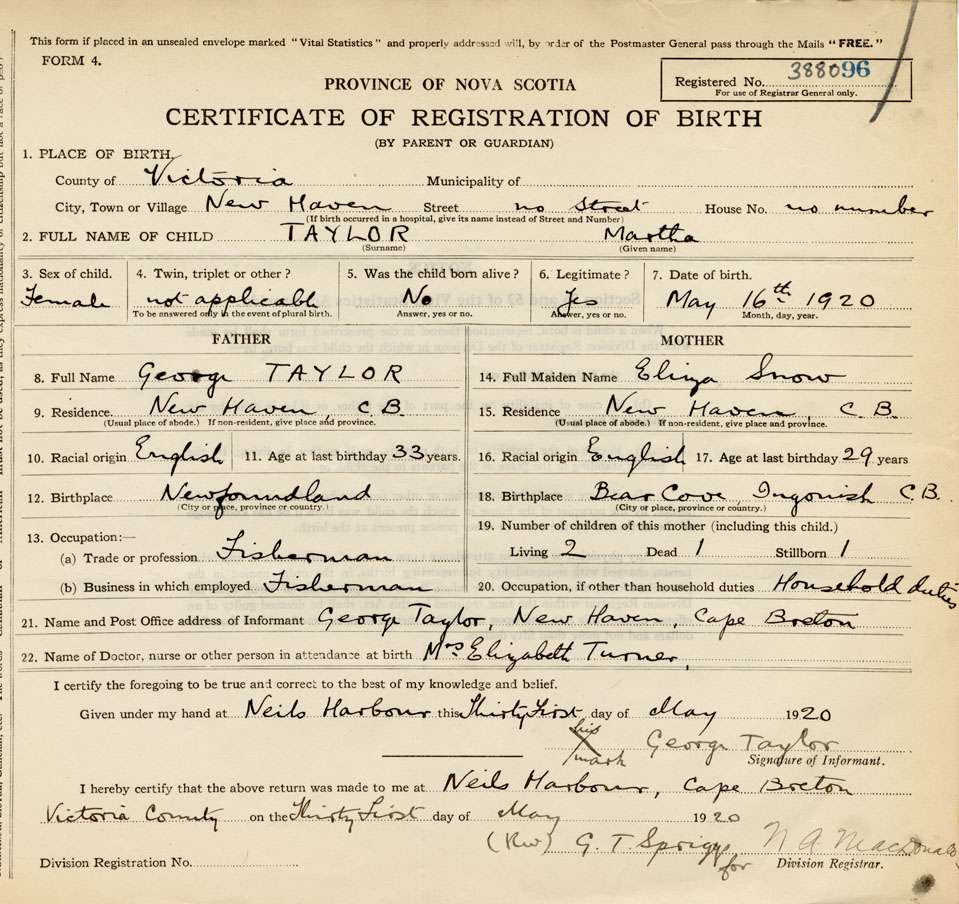 This form if placed in an unsealed envelope marked "Vital Statistics" and properly addressed will, by order of the Postmaster General pass through the Mails "FREE."
FORM 4.
Registered No. 388096
For use of Registrar General only.
PROVINCE OF NOVA SCOTIA
CERTIFICATE OF REGISTRATION OF BIRTH
(BY PARENT OR GUARDIAN)
1. PLACE OF BIRTH.
County of Victoria Municipality of
City, Town or Village New Haven Street no Street House No. no number
(If birth occurred in a hospital, give its name instead of Street and Number)
2. FULL NAME OF CHILD TAYLOR Martha
(Surname) (Given name)
3. Sex of child. 4. Twin, triplet or other? 5. Was the child born alive? 6. Legitimate? 7. Date of birth.
Female not applicable No Yes May 16th 1920
To be answered only in the event of plural birth. Answer, yes or no. Answer, yes or no. Month, day, year.
FATHER MOTHER
8. Full Name George TAYLOR 14. Full Maiden Name Eliza Snow
9. Residence. New Haven, C.B. 15. Residence New Haven, C.B.
(Usual place of abode.) If non-resident, give place and province. (Usual place of abode.) If non-resident, give place and province.
10. Racial origin English 11. Age at last birthday 33 years. 16. Racial origin English 17. Age at last birthday 29 years
12. Birthplace Newfoundland 18. Birthplace Bear Cove, Ingonish C.B.
(City or place, province or country.) (City or place, province or country.)
13. Occupation:— 19. Number of children of this mother (including this child.)
(a) Trade or profession Fisherman Living 2 Dead 1 Stillborn 1
(b) Business in which employed Fisherman 20. Occupation, if other than household duties Household duties
21. Name and Post Office address of Informant George Taylor, New Haven, Cape Breton
22. Name of Doctor, nurse or other person in attendance at birth Mrs Elizabeth Turner,
I certify the foregoing to be true and correct to the best of my knowledge and belief.
Given under my hand at Neils Harbour this Thirty First day of May 1920
his X mark George Taylor
Signature of Informant.
I hereby certify that the above return was made to me at Neils Harbour, Cape Breton
Victoria County on the Thirty First day of May 1920
(Rev) G. T. Spriggs for N A MacDonald
Division Registration No. Division Registrar.